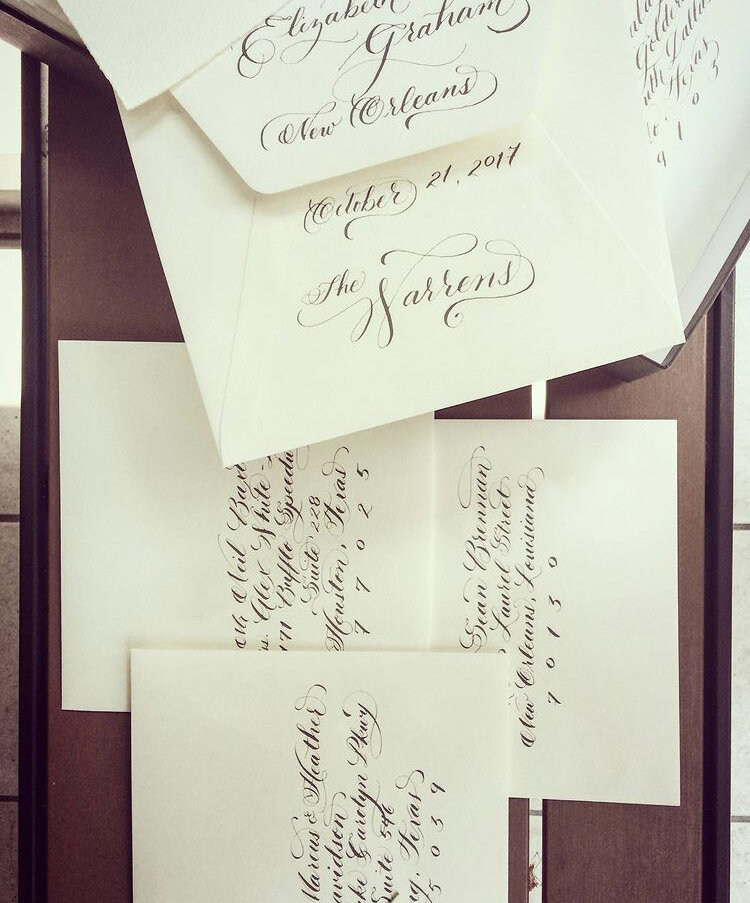 Elizabeth
Graham
New Orleans
October 21, 2017
The
Warrens
Golden
Texas
1 0 3
Neil
Alex White
171 Buffle Speedw
Suite 228
Houston, Texas
7 7 0 2 5
Sean Brennan
Laurel Street
New Orleans, Louisiana
7 0 1 3 0
Marcus & Heather
avidson
ke Carolyn Pkwy
Suite 546
g, Texas
5 0 3 9